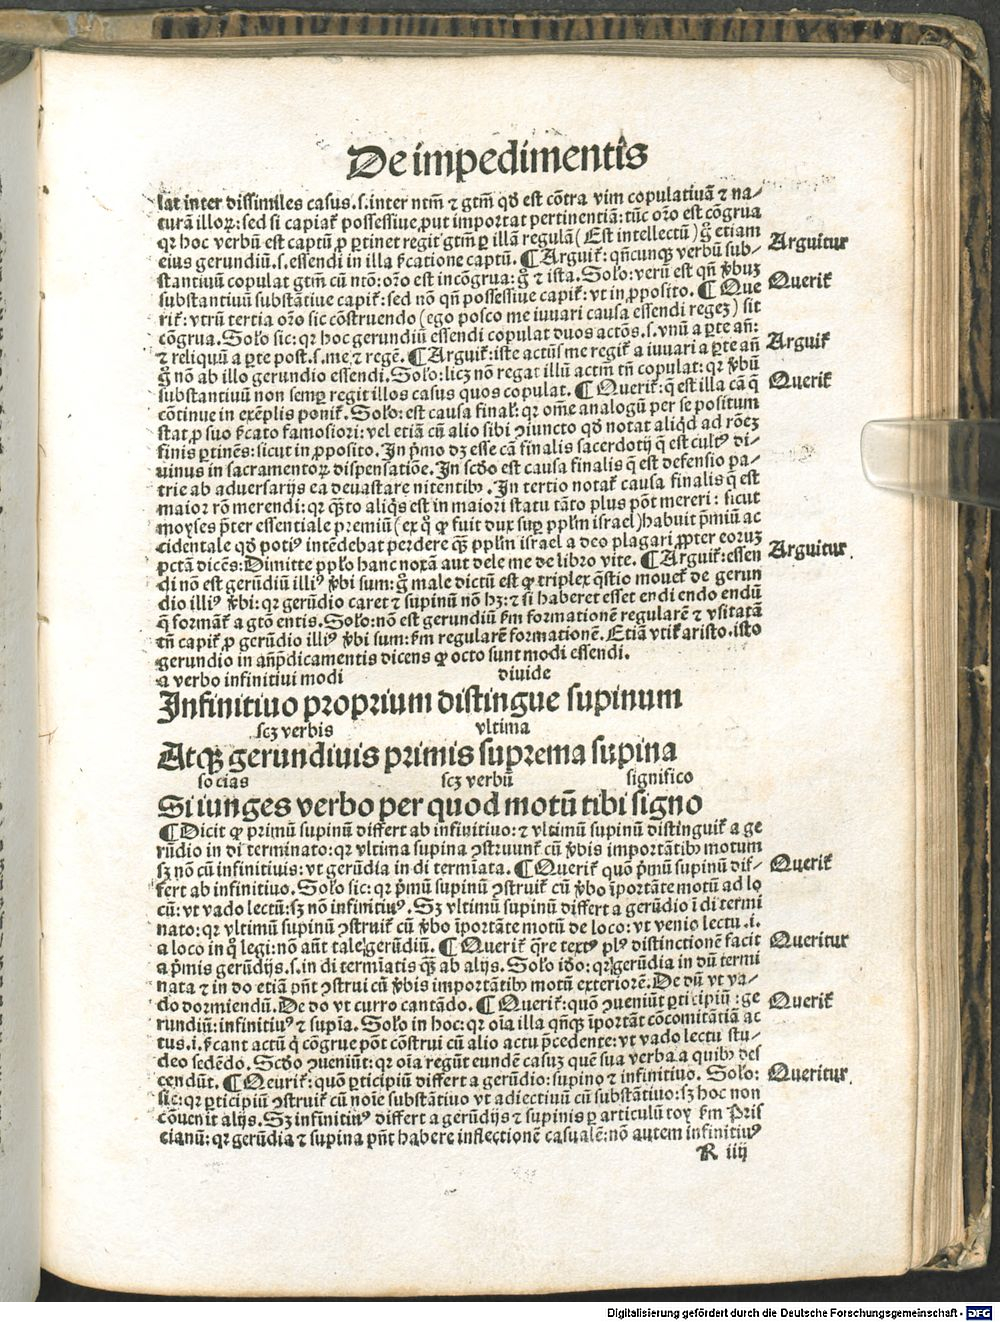 De impedimentis
lat inter dissimiles casus.s.inter ntm̄ ⁊ gtm̄ qđ est cōtra vim copulatiuā ⁊ na⸗
turā illoꝝ: sed si capiat᷑ possessiue,put importat pertinentiā: tūc oro est cōgrua
qꝛ hoc verbū est captū ꝓ ꝑtinet regit gtm̄ ꝑ illā regulā (Est intellectū) g̊ etiam
eius gerundiū.s. essendi in illa ſ̄catione captū. ¶ Arguit᷑: qn̄cunqꝫ verbū sub⸗
Arguitur
stantiuū copulat gtm̄ cū ntō: oro est incōgrua: g̊ ⁊ ista. Solo: verū est qn̄ v̄buꝫ
substantiuū substātiue capit᷑: sed nō qn̄ possessiue capit᷑: vt in ꝓposito. ¶ Que
Querit᷑
rit᷑: vtrū tertia oro sic cōstruendo (ego posco me iuuari causa essendi regeꝫ) sit
cōgrua. Solo sic: qꝛ hoc gerundiū essendi copulat duos actōs.s. vnū a ꝑte an̄:
⁊ reliquū a ꝑte post.s. me, ⁊ regē. ¶ Arguit᷑: iste actūs me regit᷑ a iuuari a ꝑte an̄
Arguit᷑
g̊ nō ab illo gerundio essendi. Solo: licꝫ nō regat illū actm̄ tn̄ copulat: qꝛ v̄bū
substantiuū non semꝑ regit illos casus quos copulat. ¶ Querit᷑: q̄ est illa cā q̄
Querit᷑
cōtinue in exēplis ponit᷑. Solo: est causa final᷑: qꝛ om̄e analogū per se positum
stat ꝓ suo ſ̄cato famosiori: vel etiā cū alio sibi ꝯiuncto qđ notat aliqđ ad rōeꝫ
finis ꝑtinēs: sicut in ꝓposito. In p̄mo dꝫ esse cā finalis sacerdotij q̄ est cultꝰ di⸗
uinus in sacramentoꝝ dispensatiōe. In scđo est causa finalis q̄ est defensio pa⸗
trie ab aduersarijs ea deuastare nitentibꝫ. In tertio notat᷑ causa finalis q̄ est
maior rō merendi: qꝛ q̄sto aliq̄s est in maiori statu tāto plus pōt mereri: sicut
moyses p̄ter essentiale premiū (ex q̊ ꝙ fuit dux suꝑ pplm̄ israel) habuit p̄miū ac
cidentale qđ potiꝰ intēdebat perdere q̄ꝫ pplm̄ israel a deo plagari ꝓpter eoruꝫ
pctā dicēs: Dimitte pplo hanc noxā aut dele me de libro vite. ¶ Arguit᷑: essen
Arguitur.
di nō est gerūdiū illiꝰ v̄bi sum: g̊ male dictū est ꝙ triplex q̄stio mouet᷑ de gerun
dio illiꝰ v̄bi: qꝛ gerūdio caret ⁊ supinū nō hꝫ: ⁊ si haberet esset endi endo endū
q̄ format᷑ a gtō entis. Solo: nō est gerundiū ſm̄ formationē regularē ⁊ vsitatā
tn̄ capit᷑ ꝓ gerūdio illiꝰ v̄bi sum: ſm̄ regularē formationē. Etiā vtit᷑ aristo. isto
gerundio in an̄p̄dicamentis dicens ꝙ octo sunt modi essendi.
a verbo infinitiui modi diuide
Infinitiuo proprium distingue supinum
scꝫ verbis vltima
Atqꝫ gerundiuis primis suprema supina
socias scꝫ verbū significo
Si iunges verbo per quod motū tibi signo
¶ Dicit ꝙ primū supinū differt ab infinitiuo: ⁊ vltimū supinū distinguit᷑ a ge
rūdio in di terminato: qꝛ vltima supina ꝯstruunt᷑ cū v̄bis importātibꝫ motum
sꝫ nō cū infinitiuis: vt gerūdia in di termīata. ¶ Querit᷑ quō p̄mū supinū dif⸗
Querit᷑
fert ab infinitiuo. Solo sic: qꝛ p̄mū supinū ꝯstruit᷑ cū v̄bo īportāte motū ad lo
cū: vt vado lectū: sꝫ nō infinitiuꝰ. Sꝫ vltimū supinū differt a gerūdio ī di termi
nato: qꝛ vltimū supinū ꝯstruit᷑ cū v̄bo īportāte motū de loco: vt venio lectu.i.
a loco in q̊ legi: nō aūt tale gerūdiū. ¶ Querit᷑ q̄re textꝰ plꝰ distinctionē facit
Queritur
a p̄mis gerūdijs.s. in di termīatis q̄ꝫ ab alijs. Solo iđo: qꝛ gerūdia in dū termi
nata ⁊ in do etiā pn̄t ꝯstrui cū v̄bis importātibꝫ motū exteriorē. De dū vt va⸗
do dormiendū. De do vt curro cantādo. ¶ Querit᷑: quō ꝯueniūt ꝑticipiū: ge
Querit᷑
rundiū: infinitiuꝰ ⁊ supīa. Solo in hoc: qꝛ oīa illa qn̄qꝫ īportāt cōcomitātiā ac
tus.i. ſ̄cant actū q̊ cōgrue pōt cōstrui cū alio actu p̄cedente: vt vado lectu stu⸗
deo sedēdo. Scđo ꝯueniūt: qꝛ oīa regūt eundē casuꝫ quē sua verba a quibꝫ des
cendūt. ¶ Qeurit᷑: quō ꝑticipiū differt a gerūdio: supino ⁊ infinitiuo. Solo:
Queritur.
sic: qꝛ ꝑticipiū ꝯstruit᷑ cū noīe substantiuo vt adiectiuū cū substātiuo: sꝫ hoc non
cōuenit alijs. Sꝫ infinitiuꝰ differt a gerūdijs ⁊ supinis ꝑ articulū toy ſm̄ Pris
cianū: qꝛ gerūdia ⁊ supina pn̄t habere inflectionē casualē: nō autem infinitiuꝰ
R iiij
Digitalisierung gefördert durch die Deutsche Forschungsgemeinschaft - DFG